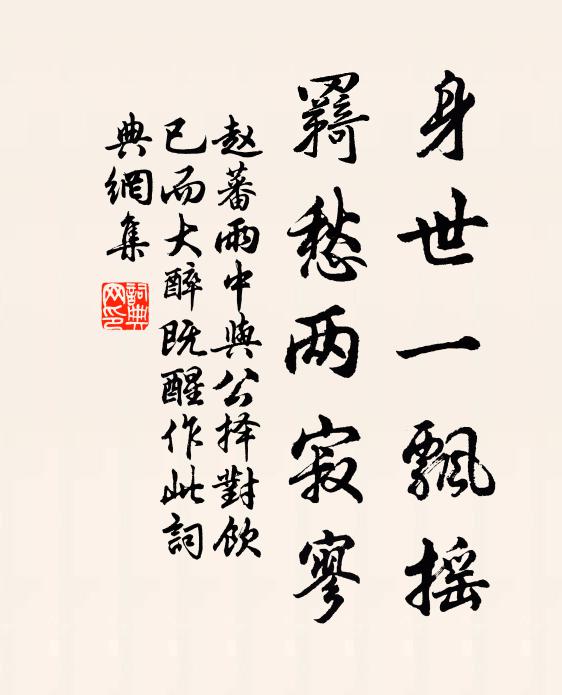 身世一飄摇
羇愁两寂寥
赵蕃雨中與公择對飲
已而大醉既醒作此詞
典網集
詞典网印